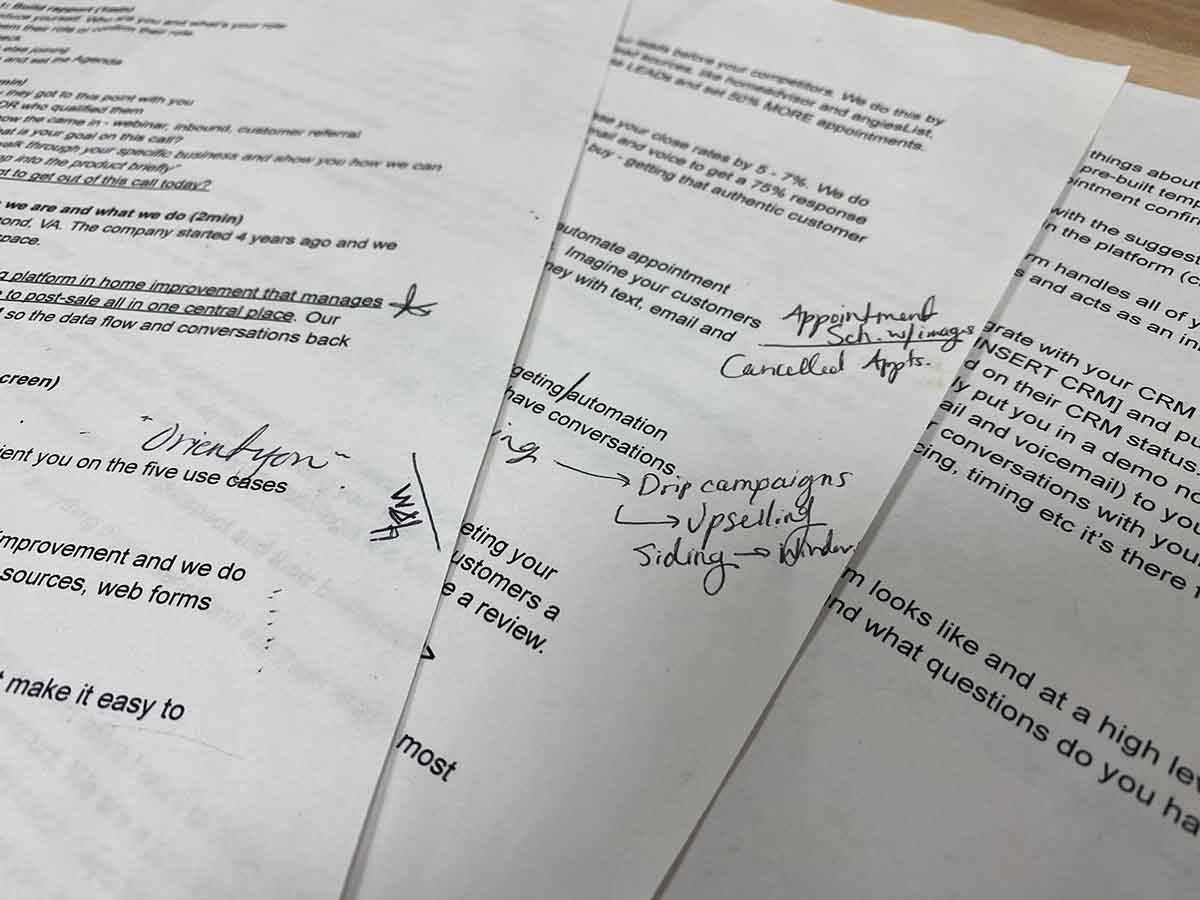 1: Build rapport (1min)
yourself. Who are you and what's your role
their role or confirm their role.
else joining
and set the Agenda
they got to this point with you
DR who qualified them
how the came in - webinar, inbound, customer referral
at is your goal on this call?
walk through your specific business and show you how we can
into the product briefly"
to get out of this call today?
we are and what we do (2min)
ond, VA. The company started 4 years ago and we
pace.
g platform in home improvement that manages
to post-sale all in one central place. Our
so the data flow and conversations back
creen)
"Orient you"
ient you on the five use cases
improvement and we do
sources, web forms
make it easy to
leads before your competitors. We do this by
sources, like homeadvisor and angiesList.
LEADs and set 50% MORE appointments.
your close rates by 5 - 7%. We do
mail and voice to get a 75% response
buy - getting that authentic customer
automate appointment
Imagine your customers
ney with text, email and
Appointment
Sch. w/images
Cancelled Appts.
geting/automation
have conversations
ing →
Drip campaigns
↳ Upselling
Siding →
eting your
ustomers a
e a review.
>
most
things about
pre-built temp
intment confir
with the suggest
in the platform (c
rm handles all of y
s and acts as an in
grate with your CRM
INSERT CRM] and pu
d on their CRM status.
ly put you in a demo no
ail and voicemail) to you
r conversations with your
cing, timing etc it's there f
m looks like and at a high lev
nd what questions do you ha